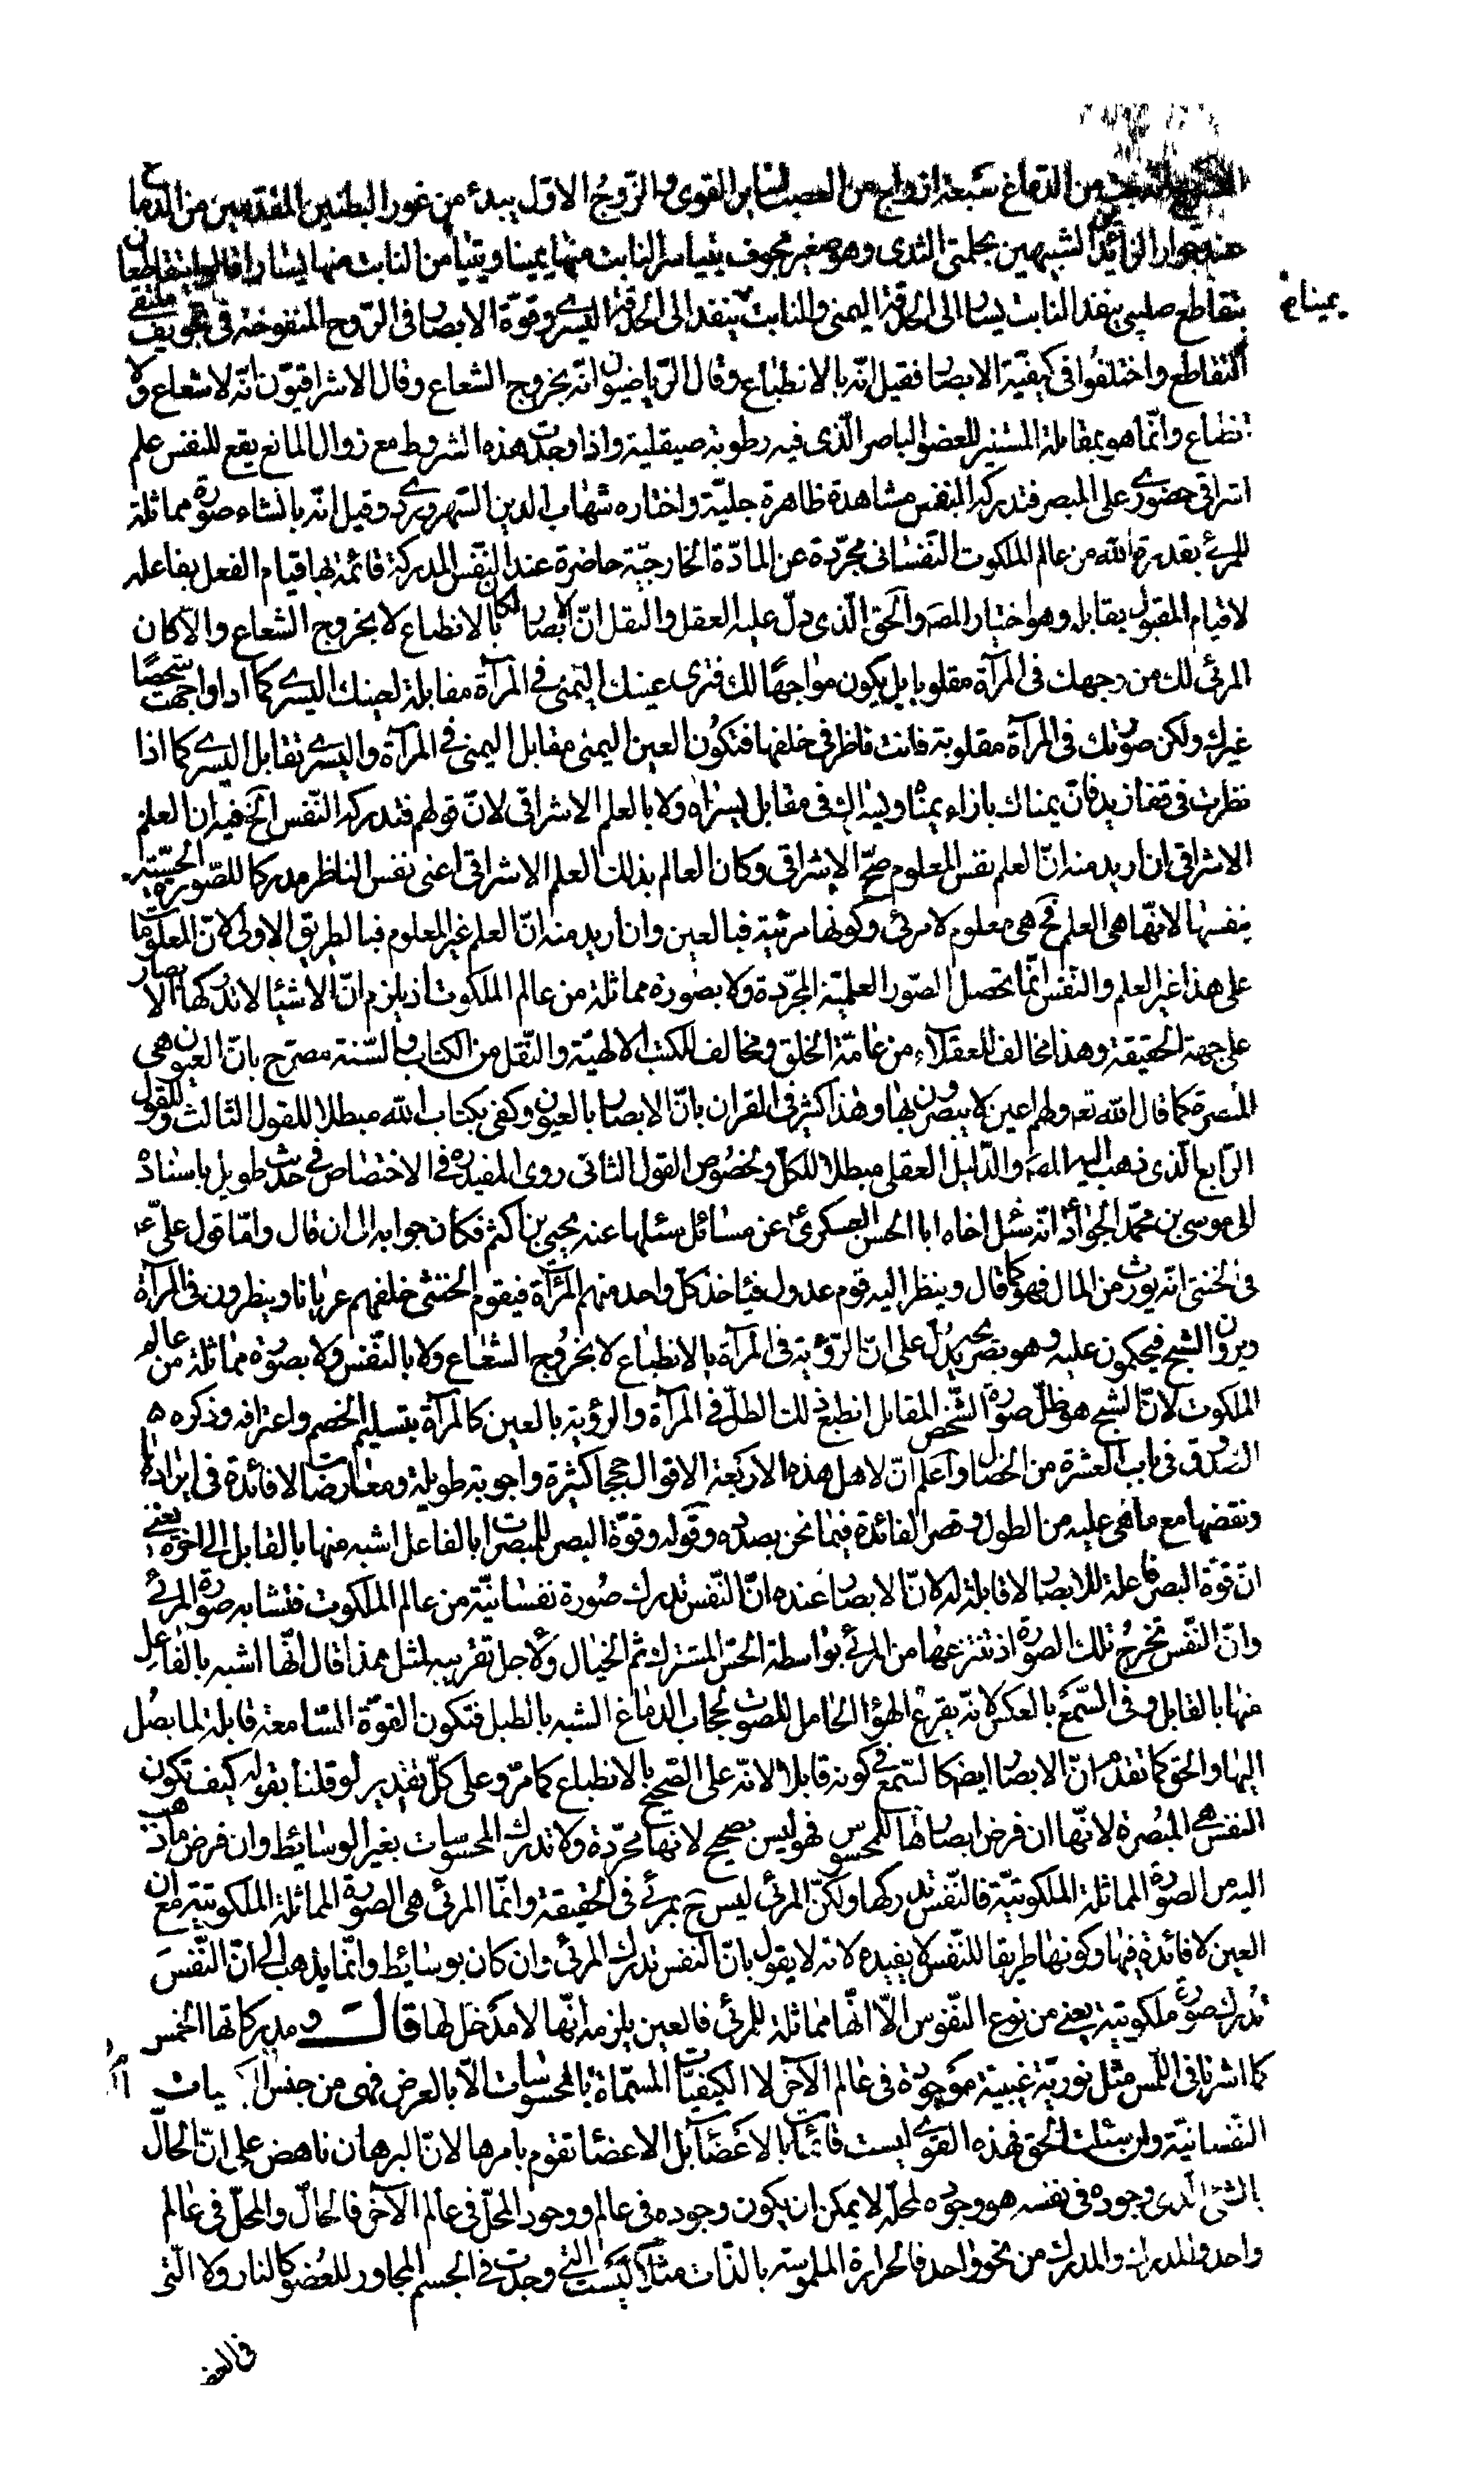 من الدماغ سبعة ازواج من العصب لسائر القوى والزّوج الاوّل يبدء من غور البطنين المقدمين من الدماغ
عند جوار الزائدتين الشبيهين بحلمتى الثدى وهو صغير مجوف يتياسر النابت منها يمينا ويتيامن النابت منها يسارا فالوا يتقاطعان
بتقاطع صليبى ينفذ النابت يسارا الى الحدقة اليمنى والنابت ينفذ الى الحدقة اليسرى وقوّة الابصار فى الرّوح المنفوخة فى تجويف ملتقى
يمينا خ
التقاطع واختلفوا فى كيفيّة الابصار فقيل انّه بالانطباع وقال الرّياضيون انّه بخروج الشعاع وقال الاشراقيّون انّه لا شعاع ولا
انطباع وانّما هو بمقابلة المستنير للعضو الباصر الّذى فيه رطوبة صيقلية واذا وجدت هذه الشروط مع زوال المانع يقع للنفس علم
اشراقى حضورى على المبصر فتدركه النفس مشاهدة ظاهرة جليّة واختاره شهاب الدين السّهروردى وقيل انّه بانشاء صورة مماثلة
للمرئى بقدرة الله من عالم الملكوت النّفسانى مجرّدة عن المادّة الخارجيّة حاضرة عند النّفس المدركة قائمة بها قيام الفعل بفاعله
لا قيام المقبول بقابله وهو اختيار المصه والحق الّذى دلّ عليه العقل والنقل انّ الابصار انما كان بالانطباع لا بخروج الشعاع والّا كان
المرئى لك من وجهك فى المرآة مقلوبا بل يكون مواجهًا لك فترى عينك اليمنى فى المرآة مقابلة لعينك اليسرى كما اذا واجهت شخصًا
غيرك ولكن صورتك فى المرآة مقلوبة فانت ناظر فى خلفها فتكون العين اليمنى مقابل اليمنى فى المرآة واليسرى تقابل اليسرى كما اذا
نظرت فى قفا زيد فانّ يمناك بازاء يمناه ويسراك فى مقابل يسراه ولا بالعلم الاشراقى لانّ قولهم فتدركه النّفس الخ فيه ان العلم
الاشراقى ان اريد منه انّ العلم نفس المعلوم صحّ الاشراقى وكان العالم بذلك العلم الاشراقى اعنى نفس الناظر مدركا للصّورة الحسّيّة
بنفسها لانّها هى العلم فح هى معلوم لا مرئى وكونها مرئية فبالعين وان اريد منه انّ العلم غير المعلوم فبالطريق الاولى لانّ المعلومات
على هذا غير العلم والنّفس انّما تحصل الصّور العلميّة المجرّدة ولا بصورة مماثلة من عالم الملكوت اذ يلزم انّ الاشياء لا تدركها الابصار
على جهة الحقيقة وهذا مخالف للعقلاء من عامّة الخلق ومخالف للكتب الالهيّة والنّقل من الكتاب والسّنة مصرّح بانّ العيون هى
المبصرة كما قال الله تعه ولهم اعين لا يبصرون بها وهذا كثير فى القران بانّ الابصار بالعيون وكفى بكتاب الله مبطلا للقول الثالث وللقول
الرّابع الّذى ذهب اليه المصه والدّليل العقلى مبطلا للكل وخصوص القول الثانى روى المفيد ره فى الاختصاص فى حديث طويل باسناده
الى موسى بن محمّد الجواد انّه سئل اخاه ابا الحسن العسكرى ع عن مسائل سئلها عنه يحيى بن اكثم فكان جوابه الى ان قال وامّا قول علىّ ع
فى الخنثى انّه يورث من المال فهو كما قال وينظر اليه قوم عدول فياخذ كلّ واحد منهم المرآة فيقوم الخنثى خلفهم عريانا وينظرون فى المرآة
ويرون الشبح فيحكمون عليه وهو صريح يدلّ على انّ الرّؤية فى المرآة بالانطباع لا بخروج الشعاع ولا بالنّفس ولا بصورة مماثلة من عالم
الملكوت لانّ الشبح هو ظلّ صورة الشّخص المقابل انطبع ذلك الظلّ فى المرآة والرؤية بالعين كالمرآة بتسليم الخصم واعترافه وذكره
الصدوق فى باب العشرة من الخصال واعلم انّ لاهل هذه الاربعة الاقوال حججا كثيرة واجوبة طويلة ومعارضات لا فائدة فى ايرادها
ونقضها مع ما هى عليه من الطول وقصر الفائدة فيما نحن بصدده وقوله وقوّة البصر للمبصرات بالفاعل اشبه منها بالقابل الى اخره يعنى
انّ قوّة البصر فاعلة للابصار لا قابلة له لانّ الابصار عنده انّ النّفس تدرك صورة نفسانيّة من عالم الملكوت فتشابه صورة المرئى
وانّ النّفس تخرج تلك الصورة اذ تنتزعها من المرئى بواسطة الحسّ المشترك ثم الخيال ولاجل تقريبه لمثل هذا قال انّها اشبه بالفاعل
منها بالقابل وفى السّمع بالعكس لانّه يقرع الهواء الحامل للصوت لحجاب الدماغ الشبه بالطبل فتكون القوّة السّامعة قابلة لما يصل
اليها والحق كما تقدم انّ الابصار ايضا كالسّمع فى كونه قابلا لانّه على الصّحيح بالانطباع كما مرّ وعلى كلّ تقدير لو قلنا بقوله كيف تكون
النفس هى المبصرة لانّها ان فرض ابصارها للمحسوس فهو ليس بصحيح لانها مجرّدة ولا تدرك المحسوسات بغير الوسائط وان فرض ما ذهب
اليه من الصّورة المماثلة الملكوتيّة فالنّفس تدركها ولكنّ المرئى ليس ح بمرئى فى الحقيقة وانّما المرئى هى الصورة المماثلة الملكوتية مع ان
العين لا فائدة فيها وكونها طريقا للنّفس لا يفيده لانه لا يقول بانّ النفس تدرك المرئى وان كان بوسائط وانّما يذهب الى انّ النّفس
تدرك صورة ملكوتية يعنى من نوع النّفوس الّا انّها مماثلة للمرئى فالعين يلزمه انّها لا مدخل لها قال ومدركاتها الخمس
كما اشرنا فى اللّمس مثل نوريّة غيبية موجودة فى عالم الآخر لا الكيفيّات المسمّاة بالمحسوسات الّا بالعرض فهى من جنس
النّفسانيّة ولن سئلت الحق فهذه القوى ليست قائمة بالاعضاء بل الاعضاء تقوم بامرها لانّ البرهان ناهض على انّ الحالّ
بالشئ الّذى وجوده فى نفسه هو وجوده لمحلّه لا يمكن ان يكون وجوده فى عالم ووجود المحلّ فى عالم الآخر فالحالّ والمحلّ فى عالم
واحد والمدرك والمدرك من نحو واحد فالحرارة الملموسة بالذّات مثلا ليست التى وجدت فى الجسم المجاور للعضو كالنار ولا الّتى
فى العضو